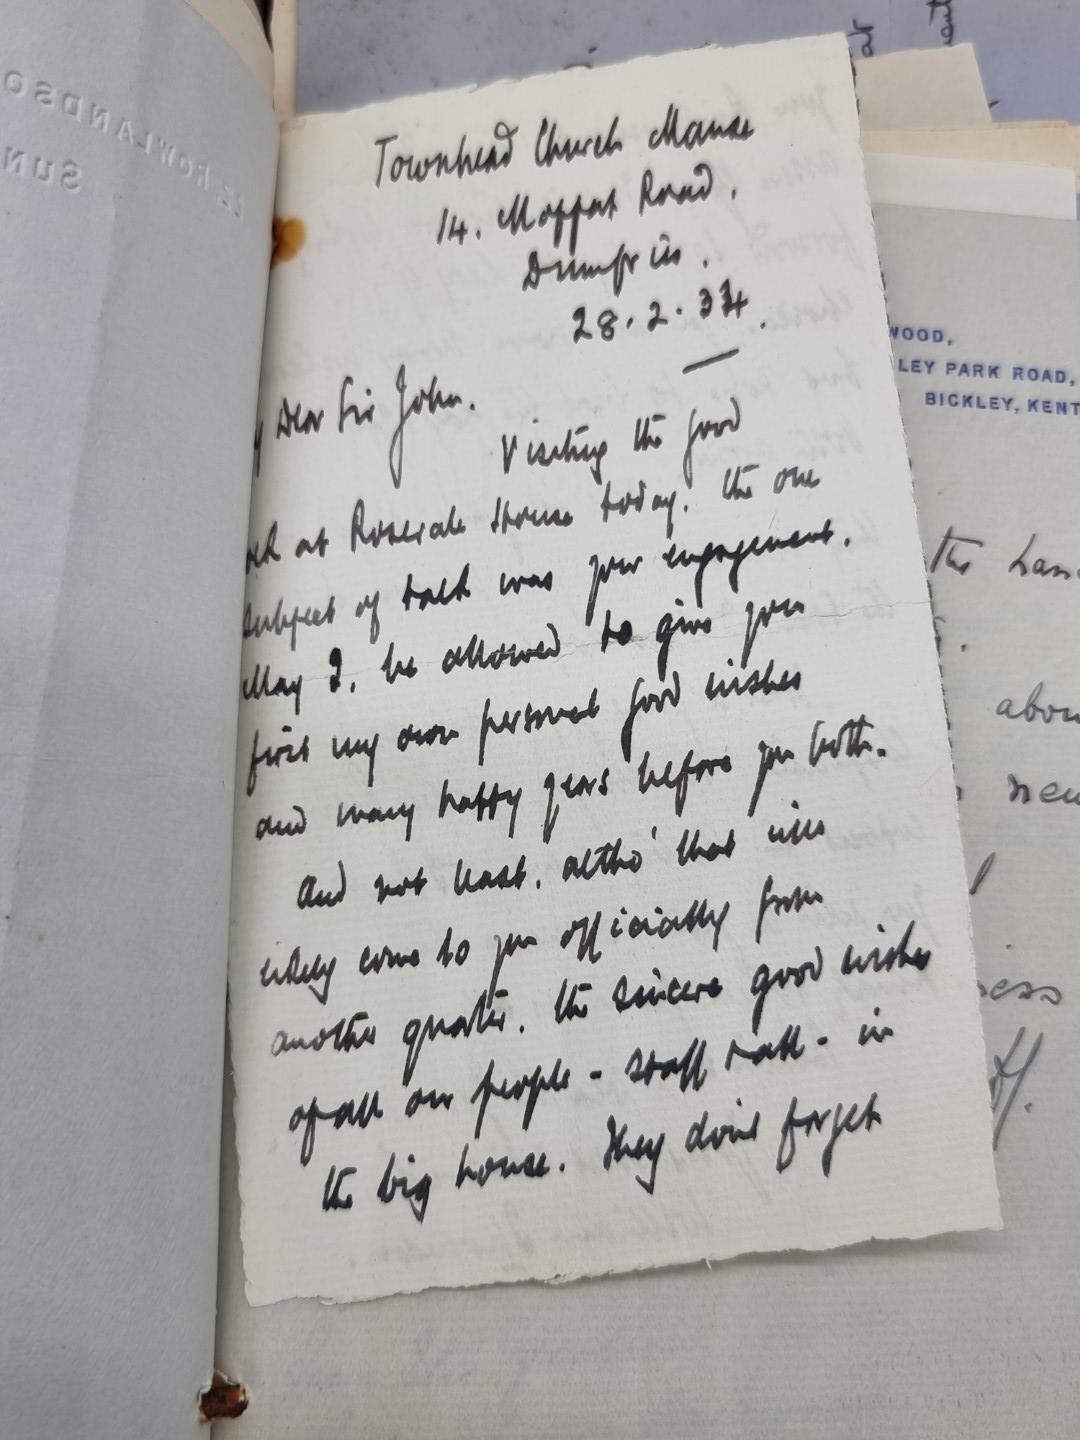 Townhead Church Manse
14. Moffat Road.
Dumfries.
28.2.34.
Dear Sir John.
Visiting the good
at Rosevale House today. the one
subject of talk was your engagement.
May I. be allowed to give you
first my own personal good wishes
and many happy years before you both.
And not least. altho' that will
likely come to you officially from
another quarter. the sincere good wishes
of all our people - staff & all - in
the big house. They dont forget
ROWLANDSO
SUN
WOOD,
LEY PARK ROAD,
BICKLEY, KENT
the